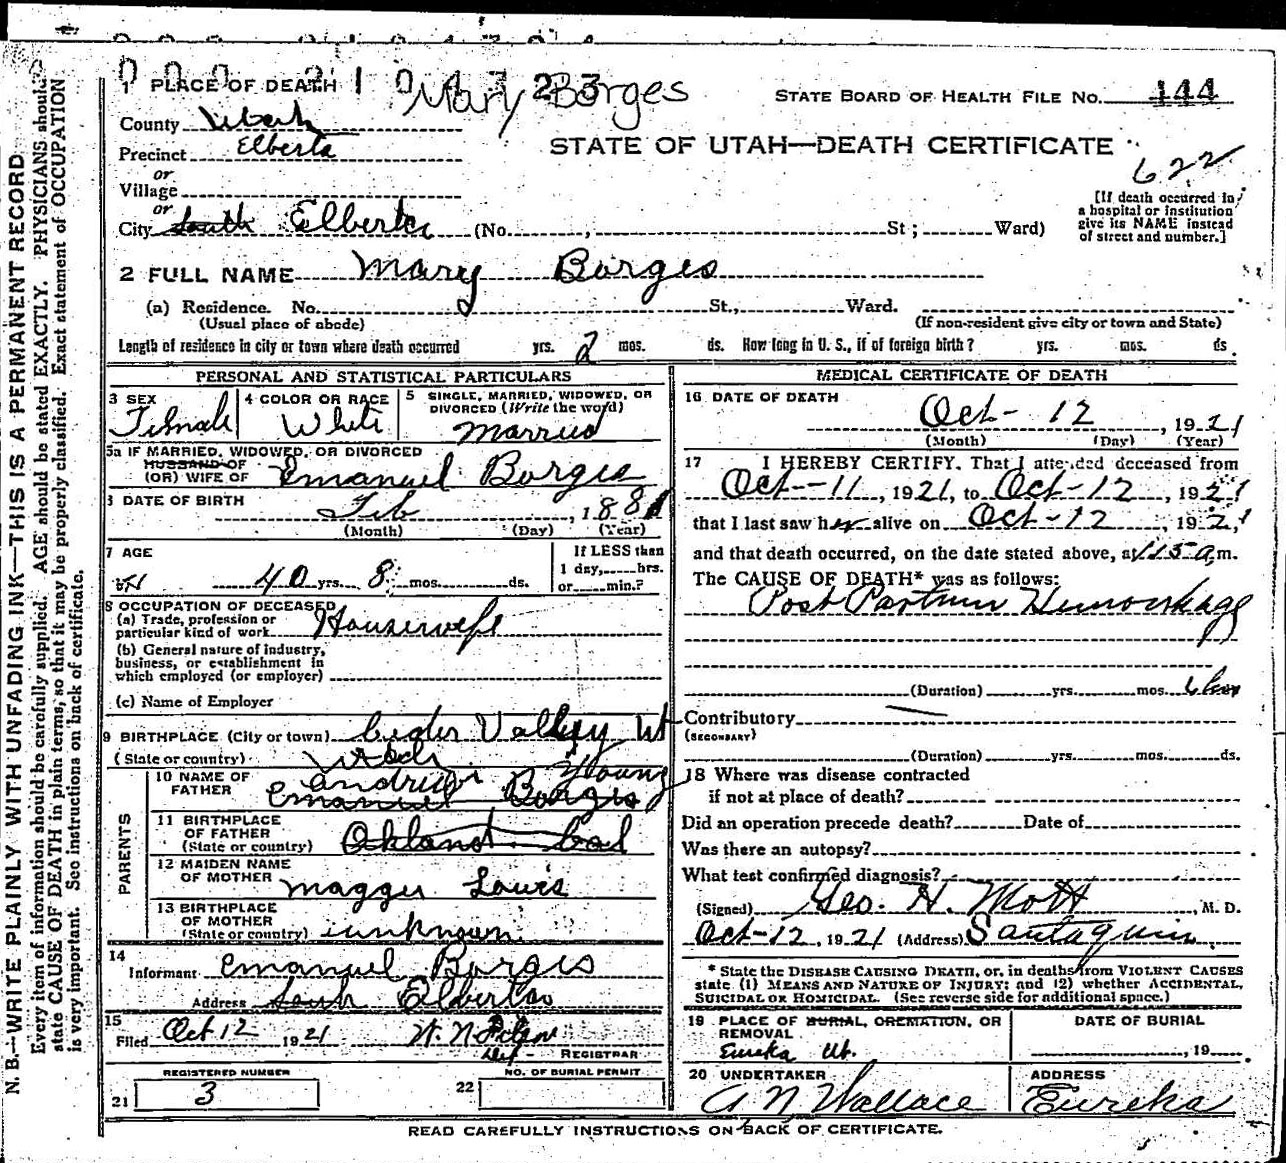 Mary Borges
1 PLACE OF DEATH
STATE BOARD OF HEALTH FILE No. 144
County Utah
STATE OF UTAH—DEATH CERTIFICATE
Precinct Elberta
622
or
Village
or
City South Elberta (No. , St ; Ward)
[If death occurred in a hospital or institution give its NAME instead of street and number.]
2 FULL NAME Mary Borges
(a) Residence. No. St., Ward.
(Usual place of abode) (If non-resident give city or town and State)
Length of residence in city or town where death occurred yrs. 2 mos. ds. How long in U. S., if of foreign birth? yrs. mos. ds.
PERSONAL AND STATISTICAL PARTICULARS
3 SEX Female
4 COLOR OR RACE White
5 SINGLE, MARRIED, WIDOWED, OR DIVORCED (Write the word) Married
5a IF MARRIED, WIDOWED, OR DIVORCED
HUSBAND OF
(OR) WIFE OF Emanuel Borges
DATE OF BIRTH Feb , 188
(Month) (Day) (Year)
7 AGE 40 yrs. 8 mos. ds.
If LESS than 1 day, hrs. or min.?
8 OCCUPATION OF DECEASED
(a) Trade, profession or particular kind of work Housewife
(b) General nature of industry, business, or establishment in which employed (or employer)
(c) Name of Employer
9 BIRTHPLACE (City or town) Ceder Valley Ut
(State or country) Utah
10 NAME OF FATHER Andrew Young
Emanuel Borges
11 BIRTHPLACE OF FATHER (State or country) Oakland Cal
12 MAIDEN NAME OF MOTHER Maggie Lewis
13 BIRTHPLACE OF MOTHER (State or country) unknown
PARENTS
14 Informant Emanuel Borges
Address South Elberta
15 Filed Oct 12 1921 W. N.
REGISTRAR
REGISTERED NUMBER
21 3
NO. OF BURIAL PERMIT
22
MEDICAL CERTIFICATE OF DEATH
16 DATE OF DEATH Oct- 12 , 1921
(Month) (Day) (Year)
17 I HEREBY CERTIFY, That I attended deceased from
Oct-11, 1921, to Oct-12, 1921
that I last saw her alive on Oct-12, 1921
and that death occurred, on the date stated above, at 115 a.m.
The CAUSE OF DEATH* was as follows:
Post Partum Hemorrhage
(Duration) yrs. mos.
Contributory
(SECONDARY)
(Duration) yrs. mos. ds.
18 Where was disease contracted
if not at place of death?
Did an operation precede death? Date of
Was there an autopsy?
What test confirmed diagnosis?
(Signed) Geo. H. Mott, M. D.
Oct-12, 1921 (Address) Santaquin
* State the DISEASE CAUSING DEATH, or, in deaths from VIOLENT CAUSES
state (1) MEANS AND NATURE OF INJURY; and (2) whether ACCIDENTAL,
SUICIDAL OR HOMICIDAL. (See reverse side for additional space.)
19 PLACE OF BURIAL, CREMATION, OR REMOVAL Eureka Ut.
DATE OF BURIAL , 19
20 UNDERTAKER A N Wallace
ADDRESS Eureka
READ CAREFULLY INSTRUCTIONS ON BACK OF CERTIFICATE.
N. B.—WRITE PLAINLY WITH UNFADING INK—THIS IS A PERMANENT RECORD
Every item of information should be carefully supplied. AGE should be stated EXACTLY. PHYSICIANS should
state CAUSE OF DEATH in plain terms, so that it may be properly classified. Exact statement of OCCUPATION
is very important. See instructions on back of certificate.